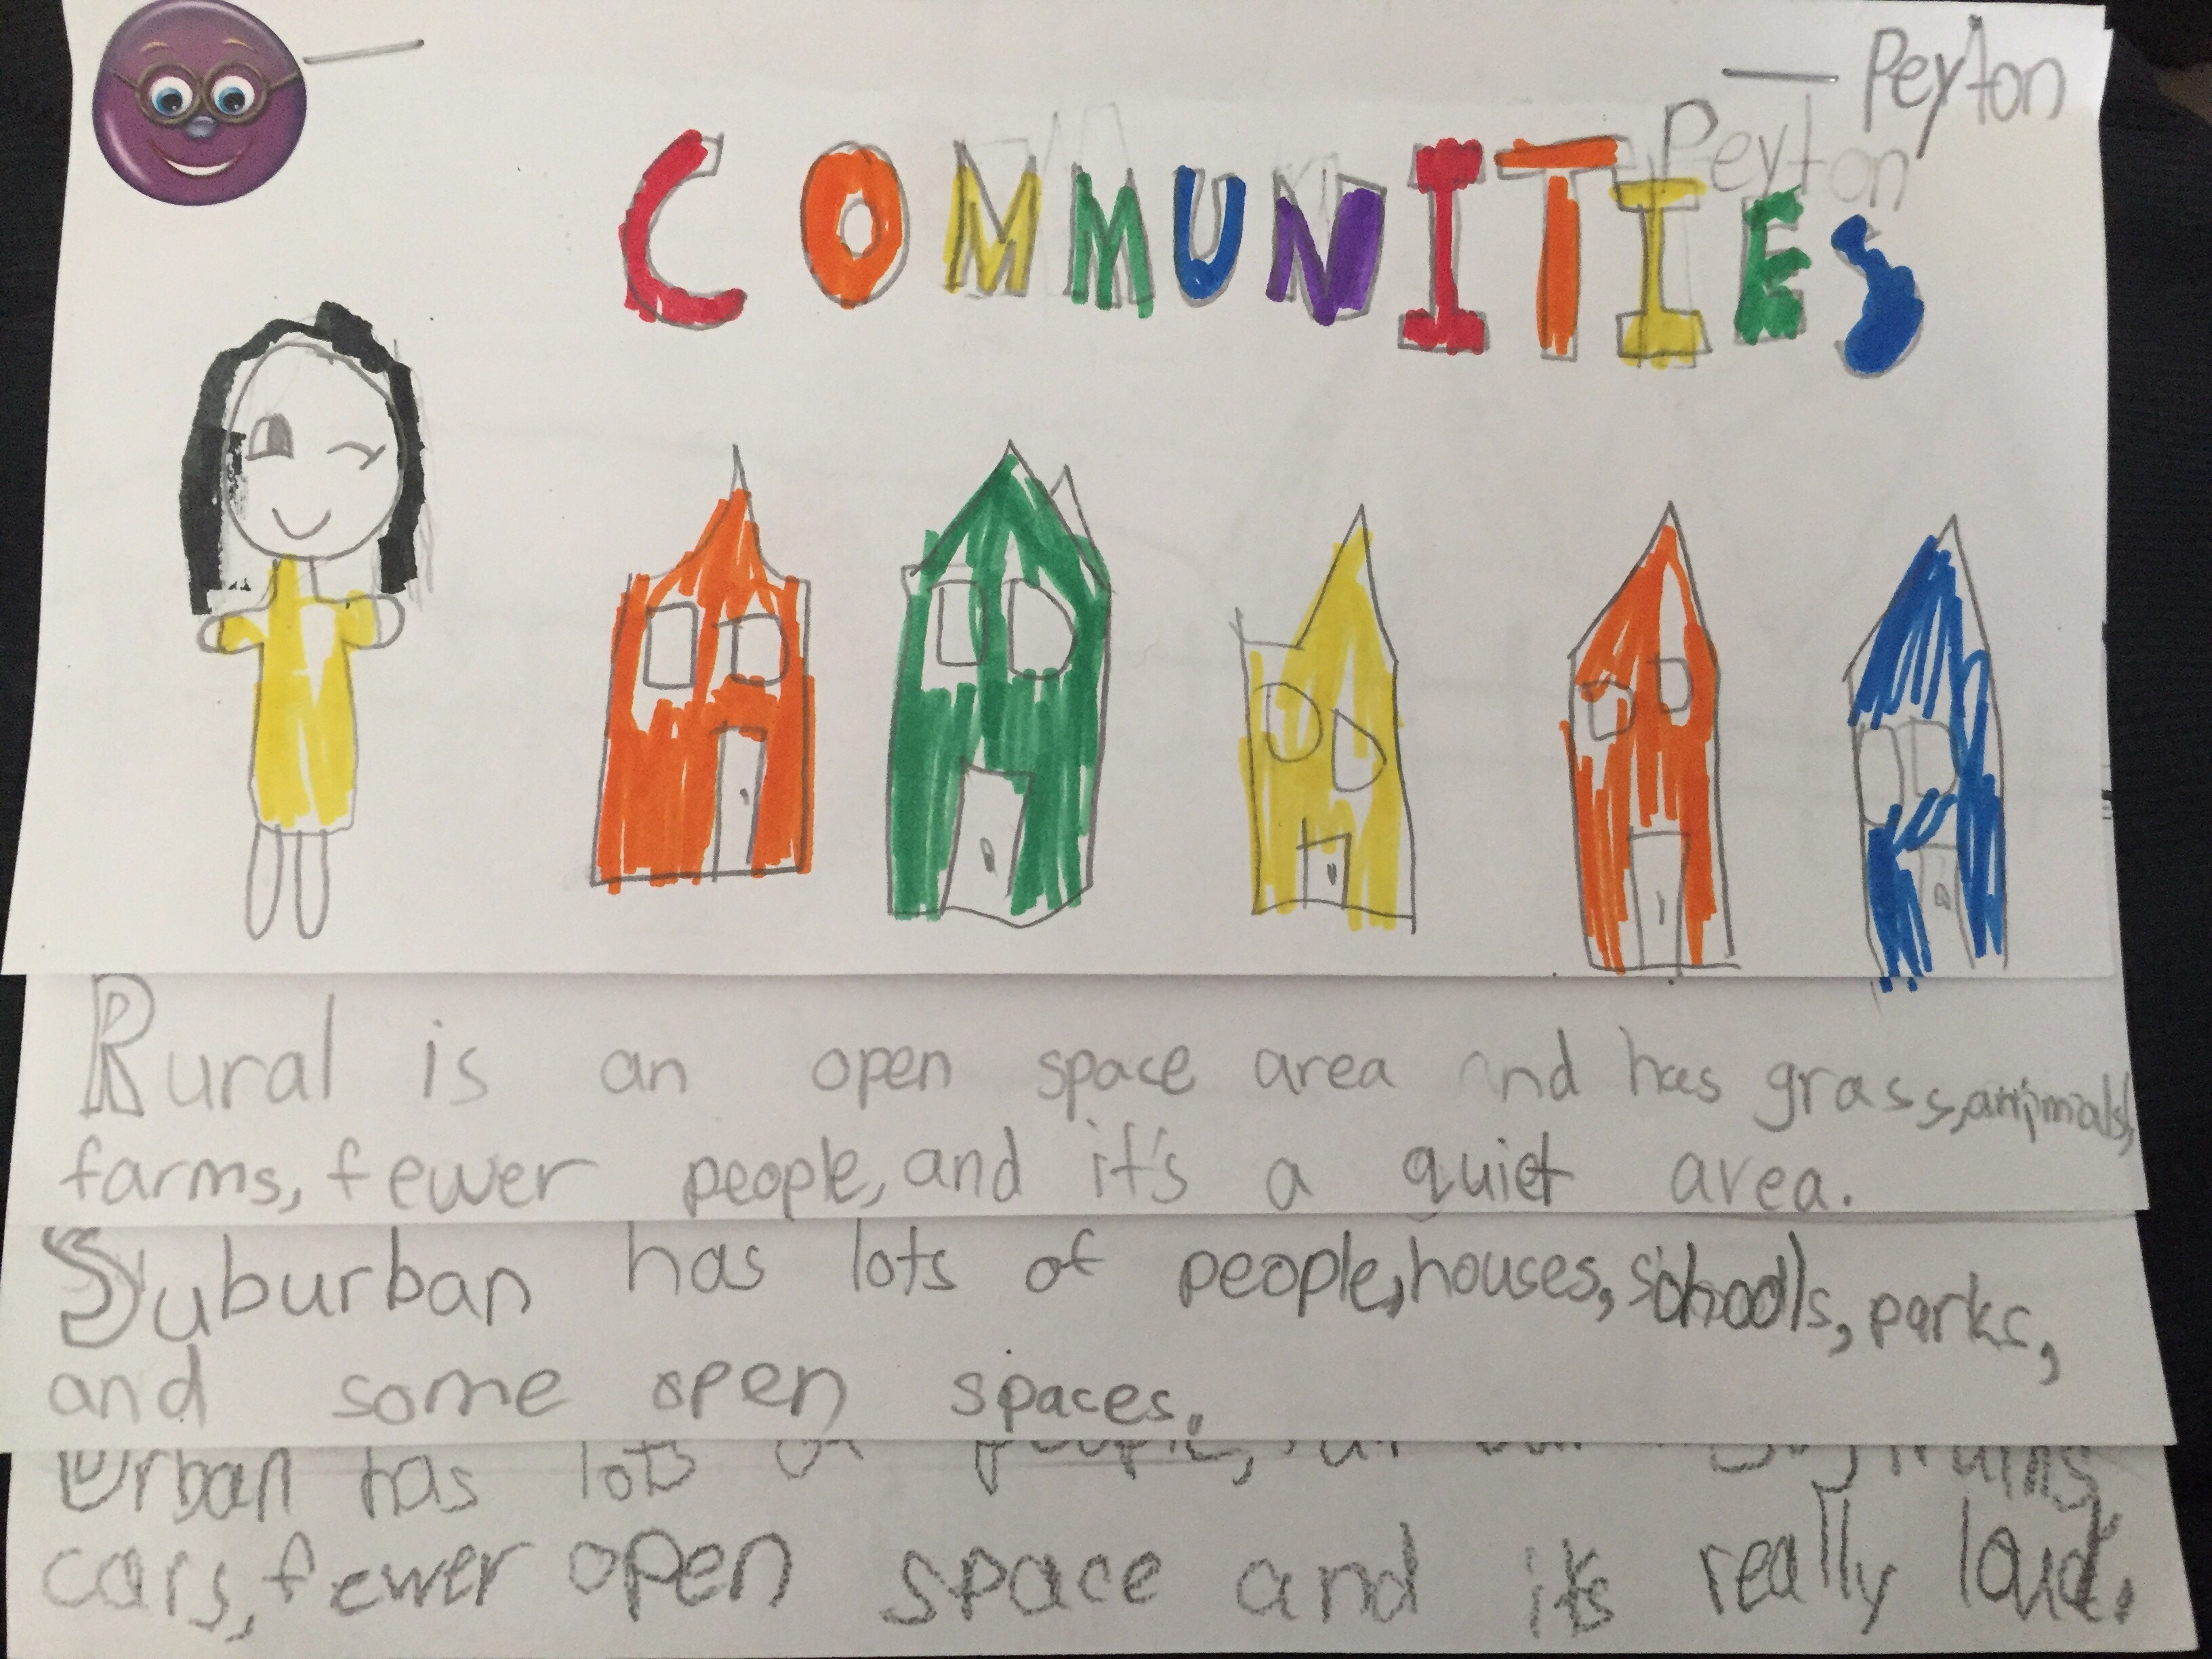 Peyton
Peyton
COMMUNITIES
Rural is an open space area and has grass, animals,
farms, fewer people, and it's a quiet area.
Suburban has lots of people, houses, schools, parks,
and some open spaces.
Urban has lots of people, trains,
cars, fewer open space and it's really loud.